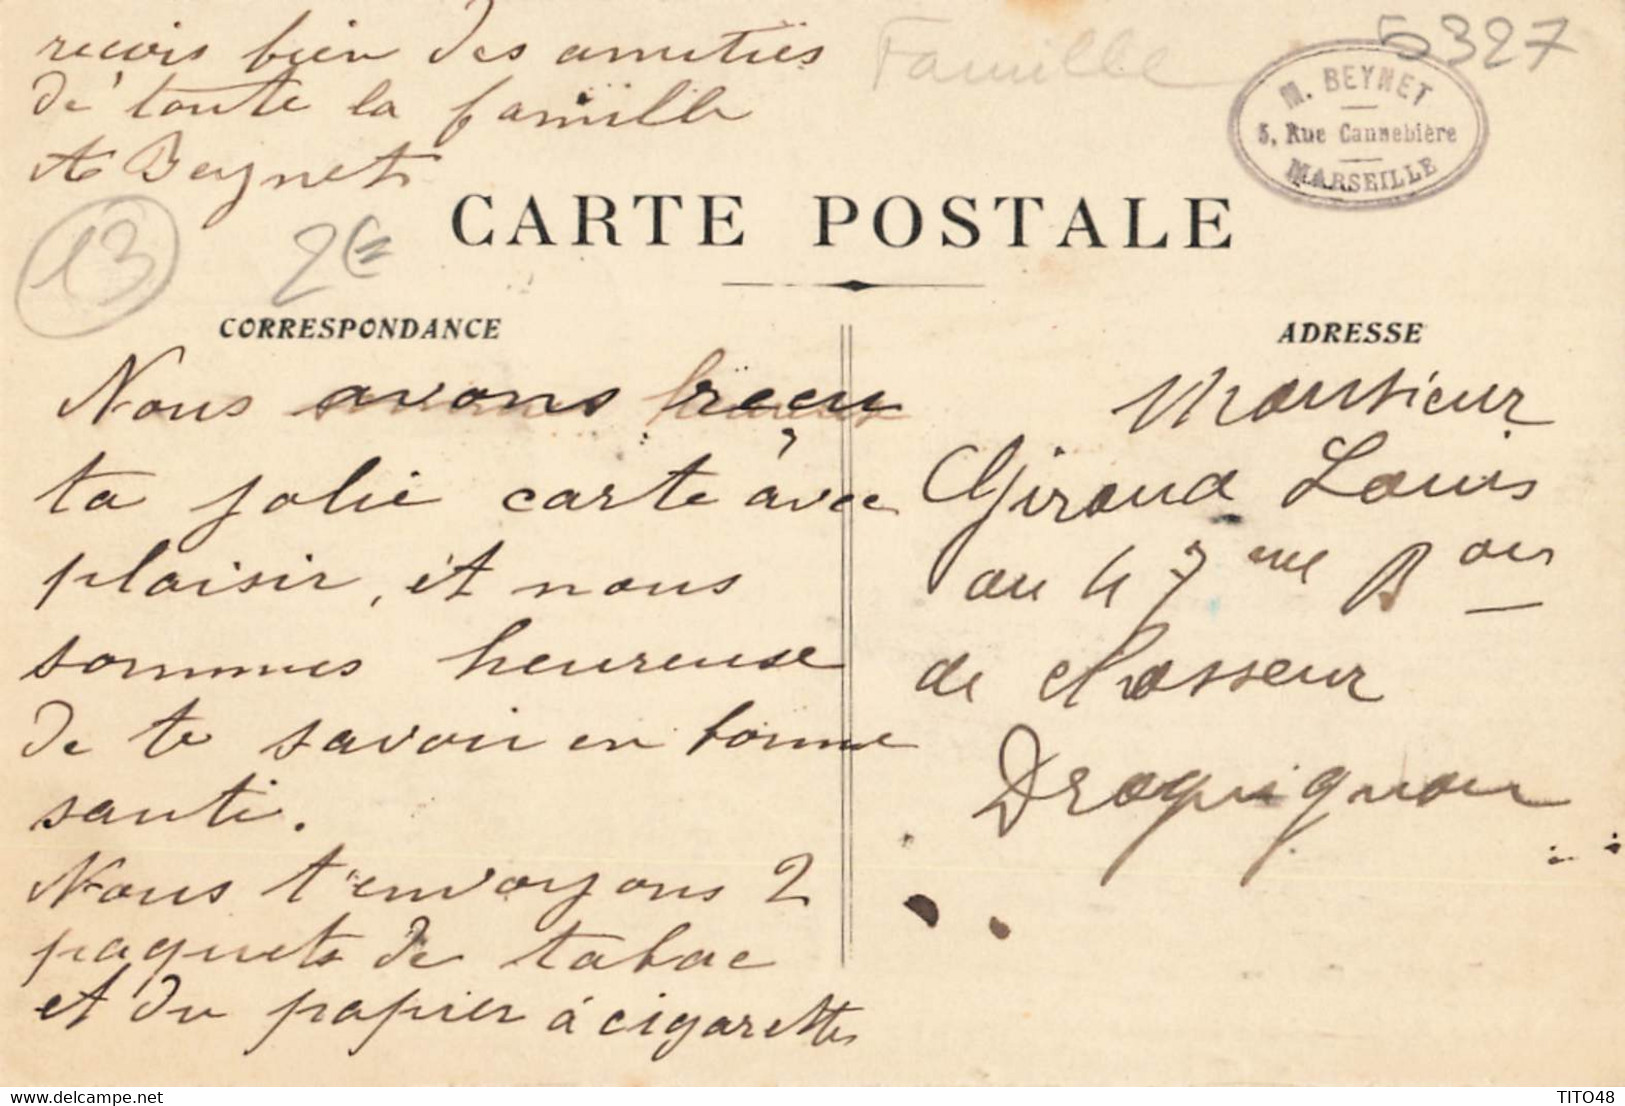 recois bien des amitiés
de toute la famille
A Beynet
Famille
5327
M. BEYNET
5, Rue Cannebière
MARSEILLE
13
2€
CARTE POSTALE
CORRESPONDANCE
Nous avons reçu
ta jolie carte avec
plaisir, et nous
sommes heureuse
de te savoir en bonne
santé.
Nous t'envoyons 2
paquets de tabac
et du papier à cigarettes
ADRESSE
Monsieur
Giraud Louis
au 47eme Bon
de chasseur
Draguignan
delcampe.net
TITO48